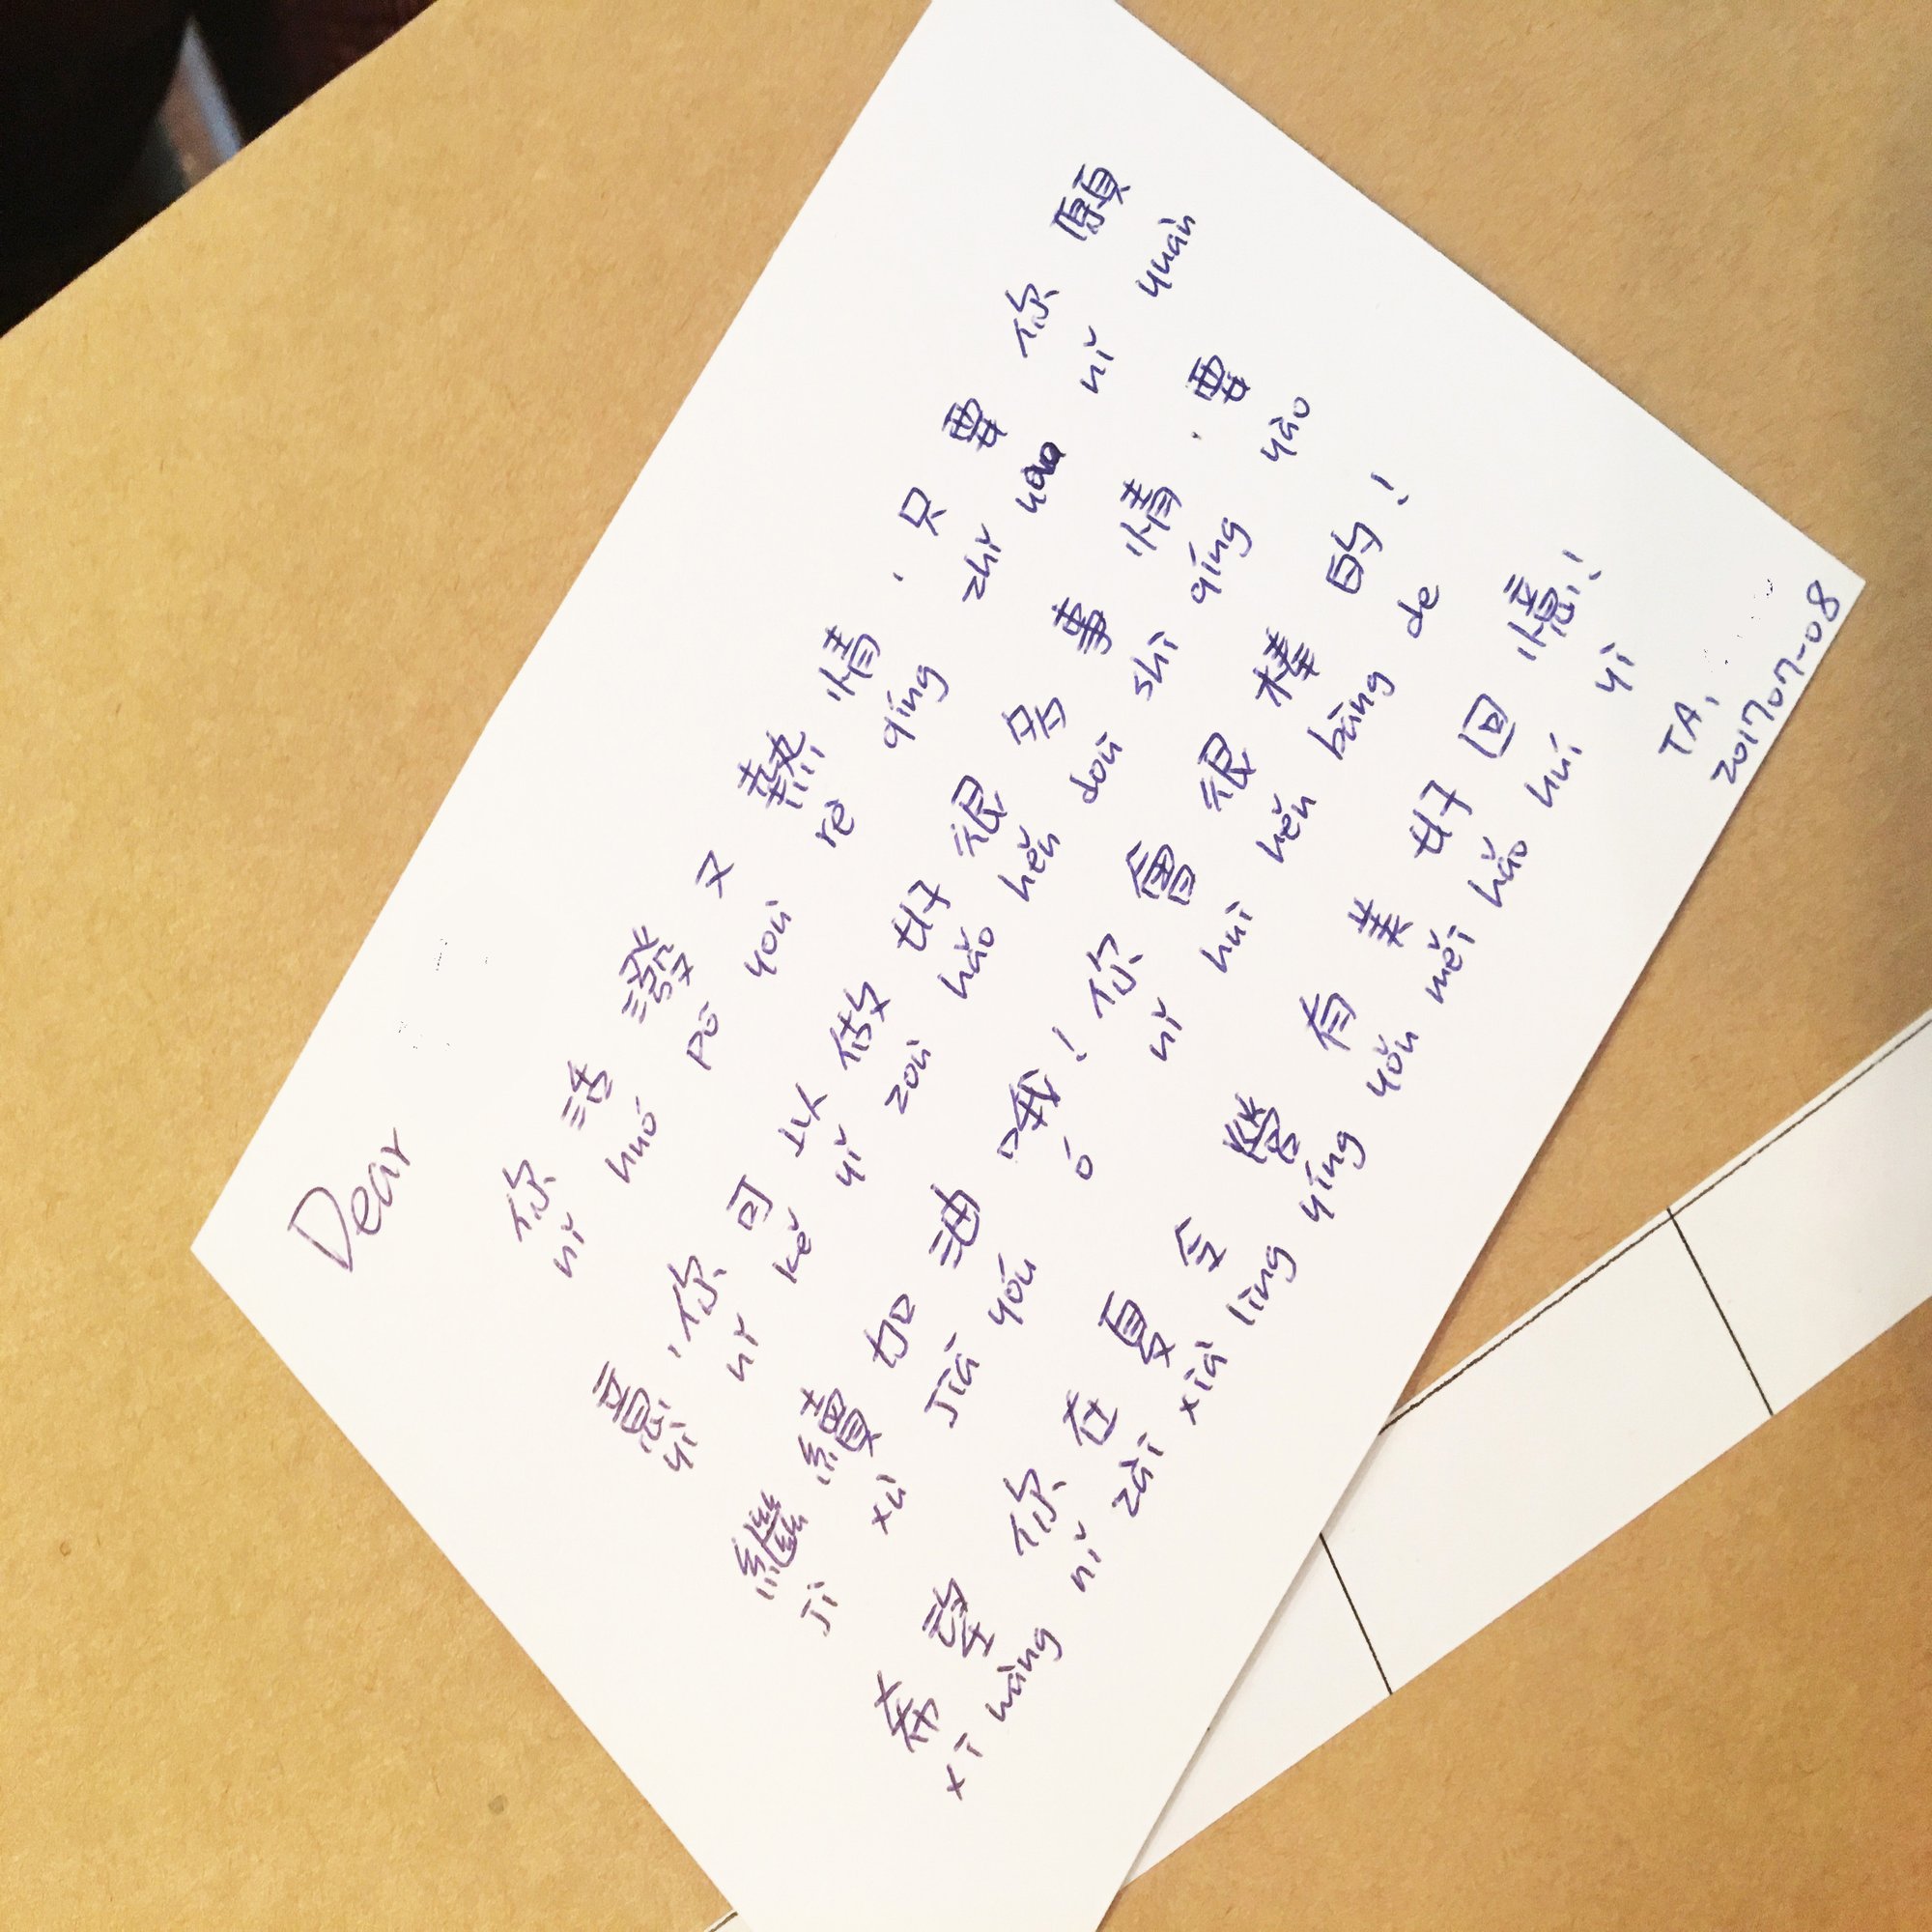 Dear
你活潑又熱情，只要你願
nǐ huó pō yòu rè qíng zhǐ yào nǐ yuàn
意，你可以做好很多事情，要
yì nǐ kě yǐ zoù hǎo hěn doū shì qíng yào
繼續加油哦！你會很棒的！
jì xù jiā yóu ó nǐ huì hěn bàng de
希望你在夏令營有美好回憶！
xī wàng nǐ zài xià lìng yíng yǒu měi hǎo huí yì
TA,
20170707-08